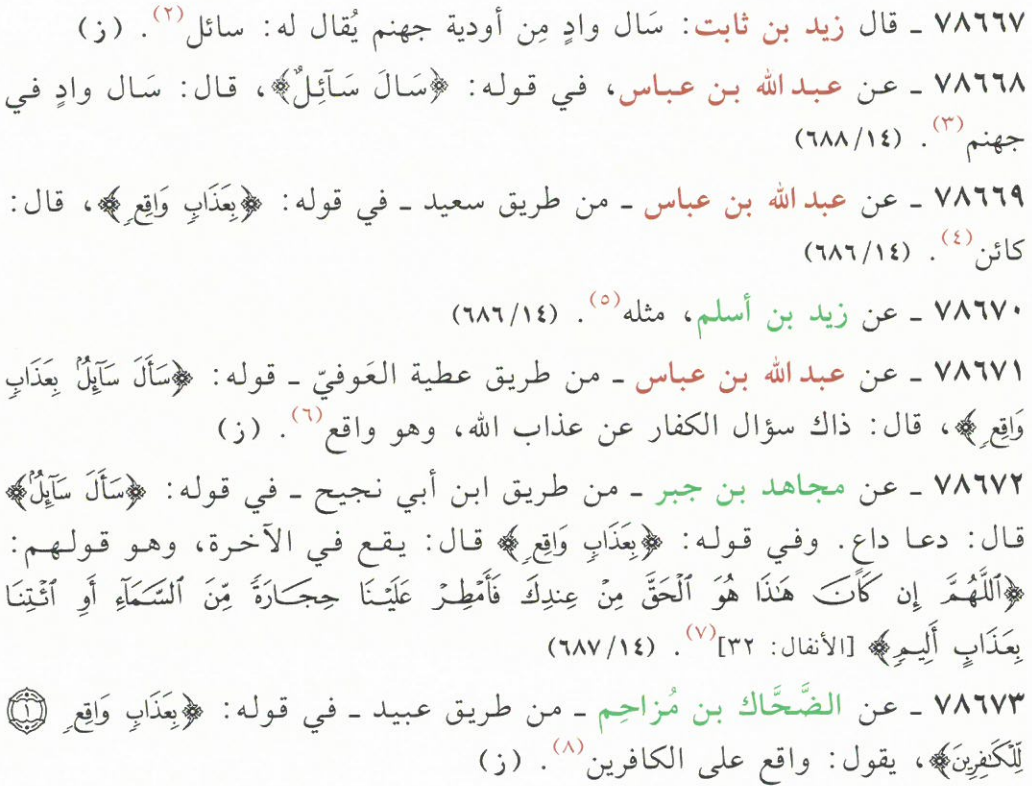 ٧٨٦٦٧ ـ قال زيد بن ثابت: سَال وادٍ مِن أودية جهنم يُقال له: سائل(٢). (ز)
٧٨٦٦٨ ـ عن عبد الله بن عباس، في قوله: ﴿سَالَ سَآئِلٌ﴾، قال: سَال وادٍ في
جهنم(٣). (٦٨٨/١٤)
٧٨٦٦٩ ـ عن عبد الله بن عباس ـ من طريق سعيد ـ في قوله: ﴿بِعَذَابٍ وَاقِعٍ﴾، قال:
كائن(٤). (٦٨٦/١٤)
٧٨٦٧٠ ـ عن زيد بن أسلم، مثله(٥). (٦٨٦/١٤)
٧٨٦٧١ ـ عن عبد الله بن عباس ـ من طريق عطية العَوفيّ ـ قوله: ﴿سَأَلَ سَآئِلٌۢ بِعَذَابٍ
وَاقِعٍ﴾، قال: ذاك سؤال الكفار عن عذاب الله، وهو واقع(٦). (ز)
٧٨٦٧٢ ـ عن مجاهد بن جبر ـ من طريق ابن أبي نجيح ـ في قوله: ﴿سَأَلَ سَآئِلٌۢ﴾
قال: دعا داعٍ. وفي قوله: ﴿بِعَذَابٍ وَاقِعٍ﴾ قال: يقع في الآخرة، وهو قولهم:
﴿ٱللَّهُمَّ إِن كَانَ هَٰذَا هُوَ ٱلْحَقَّ مِنْ عِندِكَ فَأَمْطِرْ عَلَيْنَا حِجَارَةً مِّنَ ٱلسَّمَآءِ أَوِ ٱئْتِنَا
بِعَذَابٍ أَلِيمٍ﴾ [الأنفال: ٣٢](٧). (٦٨٧/١٤)
٧٨٦٧٣ ـ عن الضَّحَّاك بن مُزاحِم ـ من طريق عبيد ـ في قوله: ﴿بِعَذَابٍ وَاقِعٍ ۝١
لِّلْكَٰفِرِينَ﴾، يقول: واقع على الكافرين(٨). (ز)